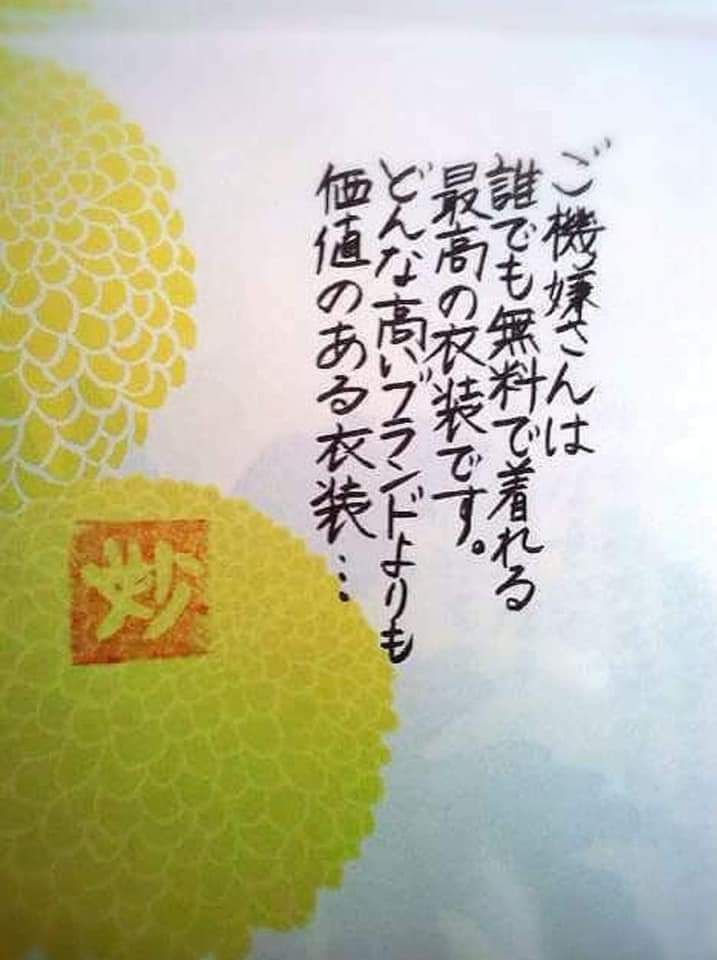 ご機嫌さんは
誰でも無料で着れる
最高の衣装です。
どんな高いブランドよりも
価値のある衣装…
妙